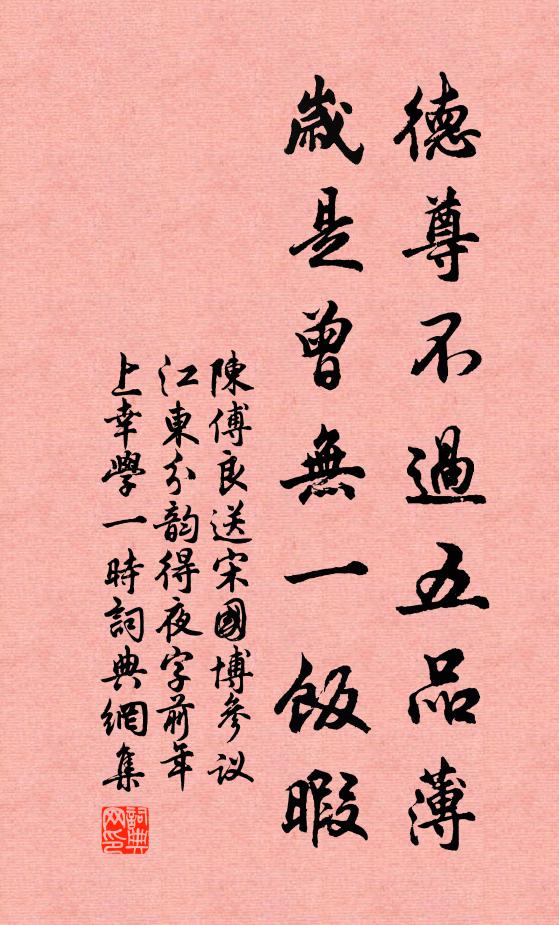 德尊不過五品薄
歲是曾無一飯暇
陳傅良送宋國博參议
江東分韵得夜字前年
上幸學一時詞典網集
詞典
网印